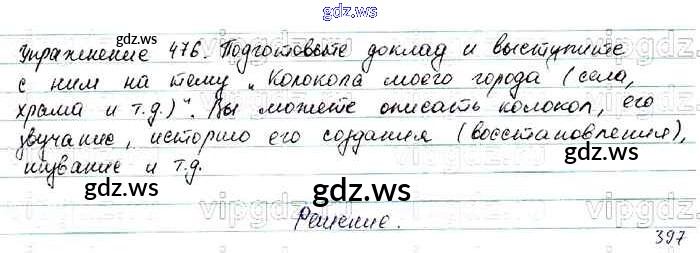 gdz.ws
Упражнение 476. Подготовьте доклад и выступите
с ним на тему „Колокола моего города (села,
храма и т.д.)". Вы можете описать колокол, его
звучание, историю его создания (восстановления),
и т.д.
gdz.ws gdz.ws gdz.ws
Решение.
397
gdz.ws gdz.ws